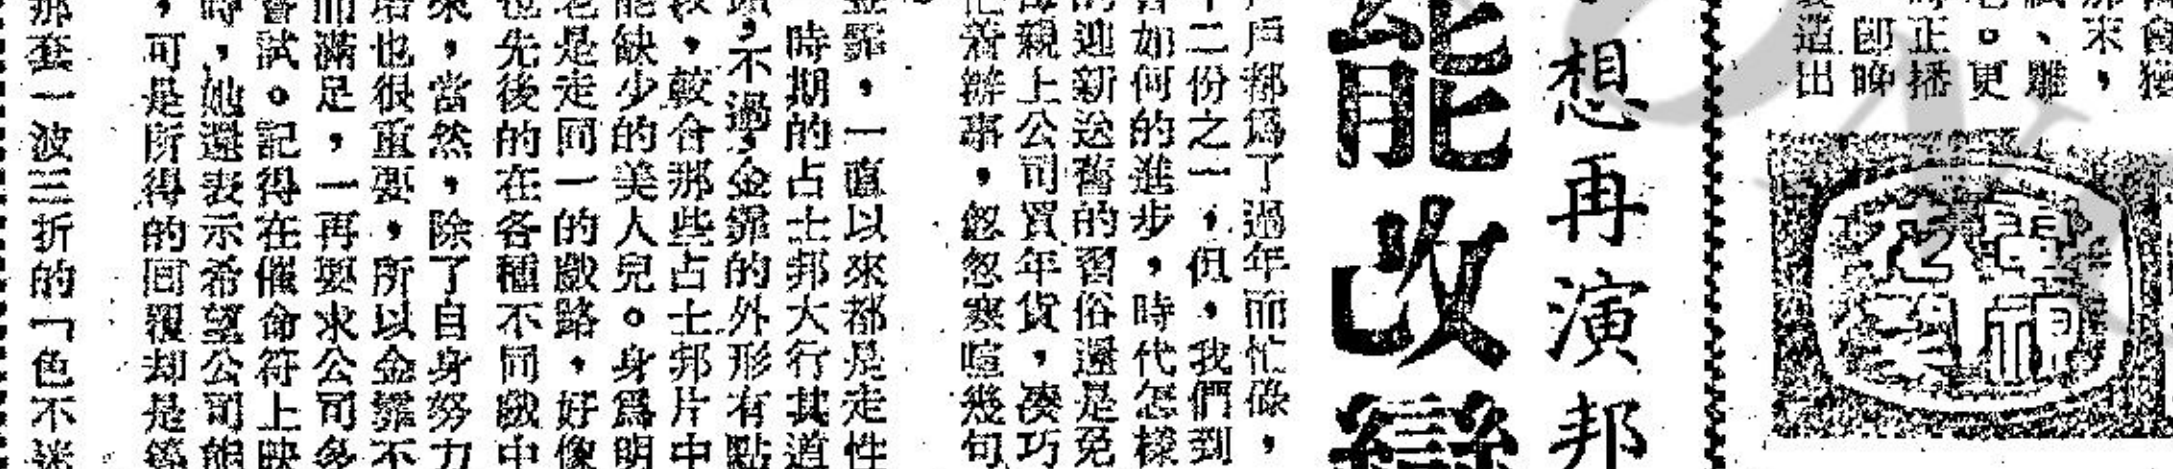 會
來，
、雖
。更
正播
即晚
造出
電視
想再演邦
能改變
戶都爲了過年而忙碌，
二份之一，但，我們到
如何的進步，時代怎樣
的迎新送舊的習俗還是免
母親上公司買年貨，湊巧
忙着辦事，忽忽寒喧幾句
金霏，一直以來都是走性
時期的占士邦大行其道
，不過，金霏的外形有點
，較合那些占士邦片中
能缺少的美人兒。身爲明
老是走同一的戲路，好像
也先後的在各種不同戲中
來，當然，除了自身努力
也很重要，所以金霏不
而滿足，一再要求公司多
試。記得在催命符上映
時，她還表示希望公司能
，可是所得的回覆却是
那套一波三折的「色不迷